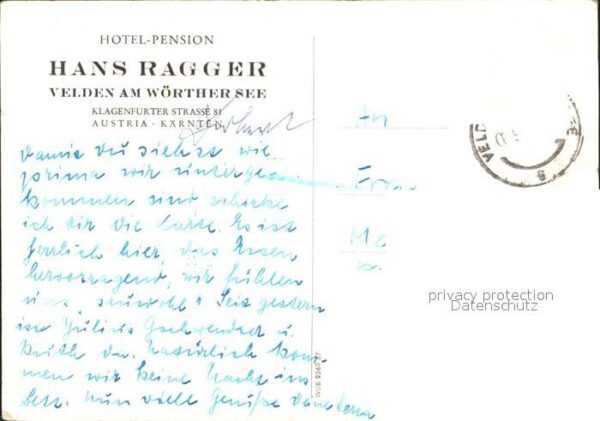 HOTEL-PENSION
HANS RAGGER
VELDEN AM WÖRTHER SEE
KLAGENFURTER STRASSE 81
AUSTRIA · KÄRNTEN
damit du siehst wie
prima wir unterge-
kommen sind schicke
ich dir die Karte. Es ist
herrlich hier, das Essen
hervorragend, wir fühlen
uns „sauwohl“ Seit gestern
ist Julius Gschwendner u.
Ruth da. Natürlich kom-
men wir keine Nacht ins
Bett. Nun viele Grüße
An
Frau
VELD
privacy protection
Datenschutz
WUB